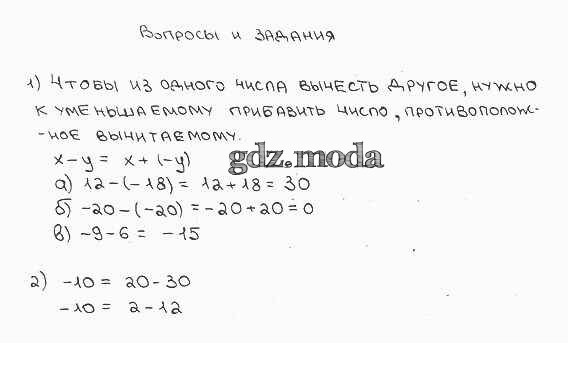 Вопросы и задания
1) Чтобы из одного числа вычесть другое, нужно
к уменьшаемому прибавить число, противополож-
-ное вычитаемому.
x-y = x+(-y)
gdz.moda
а) 12-(-18) = 12+18 = 30
б) -20-(-20) = -20+20 = 0
в) -9-6 = -15
2) -10 = 20-30
-10 = 2-12